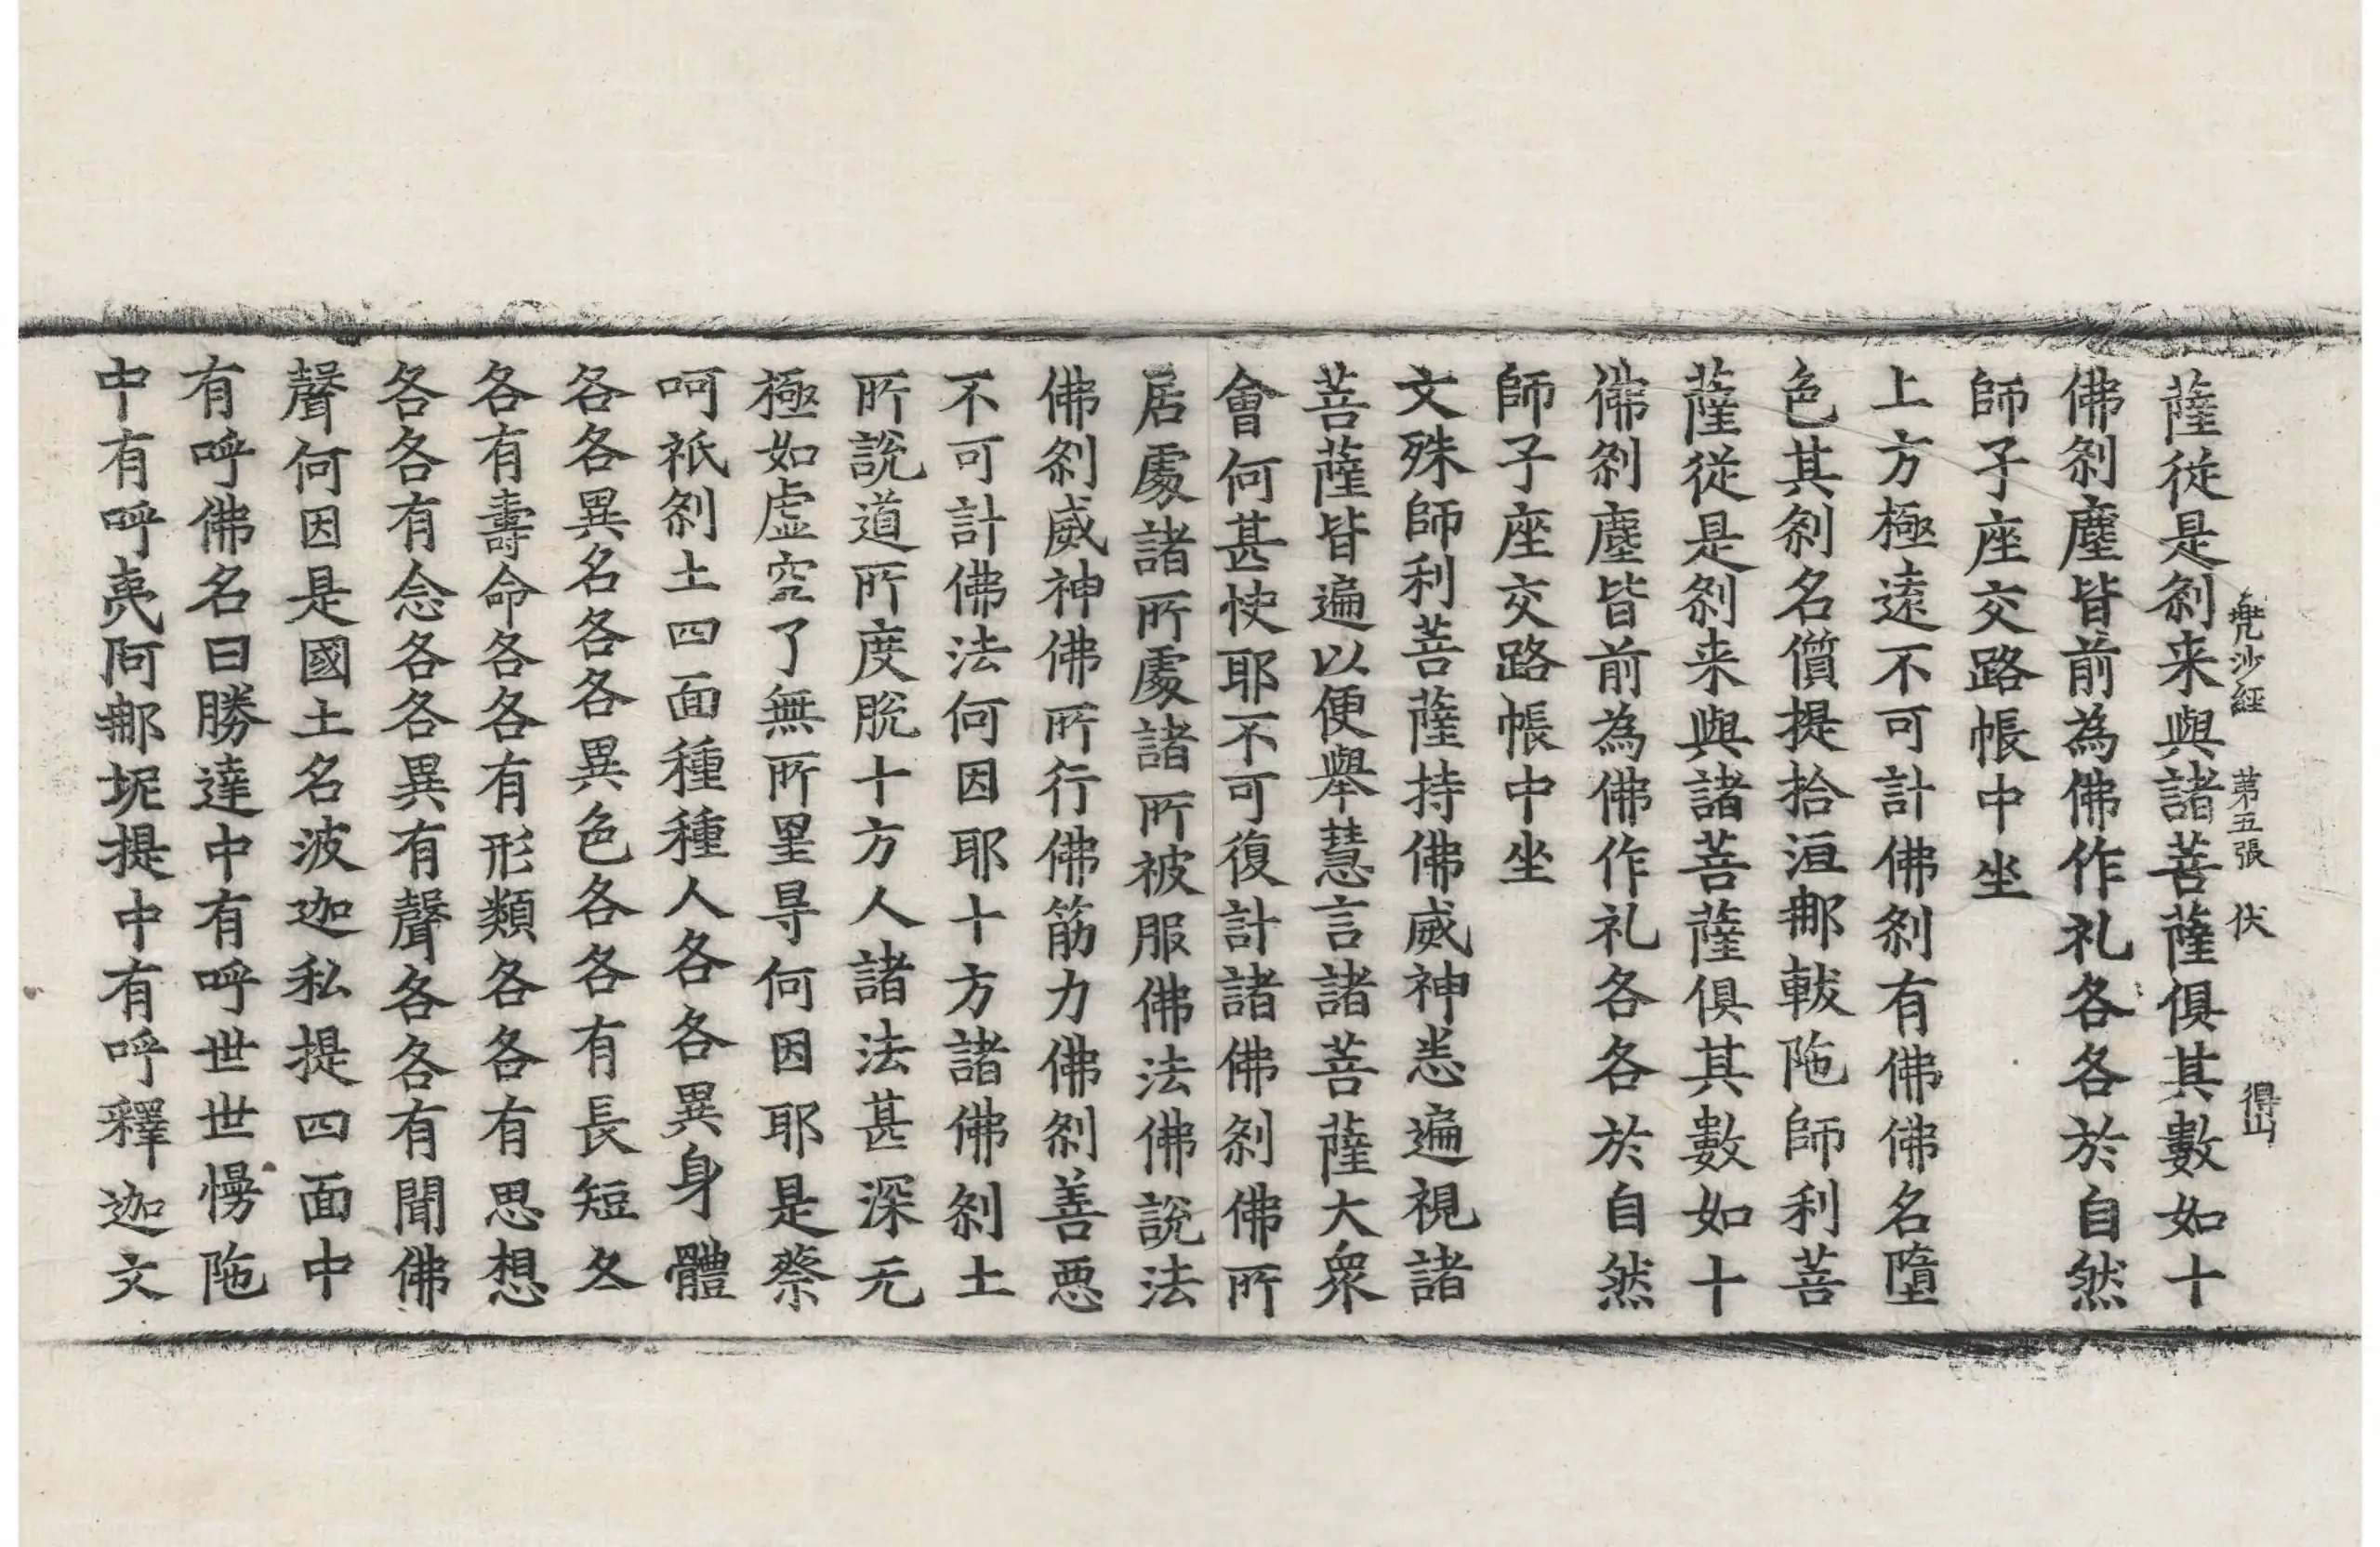 兜沙經 第五張 伏 得山
薩從是刹来與諸菩薩俱其數如十
佛刹塵皆前為佛作礼各各於自然
師子座交路帳中坐
上方極遠不可計佛刹有佛佛名墮
色其刹名質提拾洹那軷陁師利菩
薩從是刹来與諸菩薩俱其數如十
佛刹塵皆前為佛作礼各各於自然
師子座交路帳中坐
文殊師利菩薩持佛威神悉遍視諸
菩薩皆遍以便舉慧言諸菩薩大衆
會何甚快耶不可復計諸佛刹佛所
居處諸所處諸所被服佛法佛說法
佛刹威神佛所行佛筋力佛刹善惡
不可計佛法何因耶十方諸佛刹土
所說道所度脫十方人諸法甚深无
極如虛空了無所罣㝵何因耶是蔡
呵祇刹土四面種種人各各異身體
各各異名各各異色各各有長短各
各有壽命各各有形類各各有思想
各各有念各各異有聲各各有聞佛
聲何因是國土名波迦私提四面中
有呼佛名曰勝達中有呼世世慢陁
中有呼夷阿那坭提中有呼釋迦文